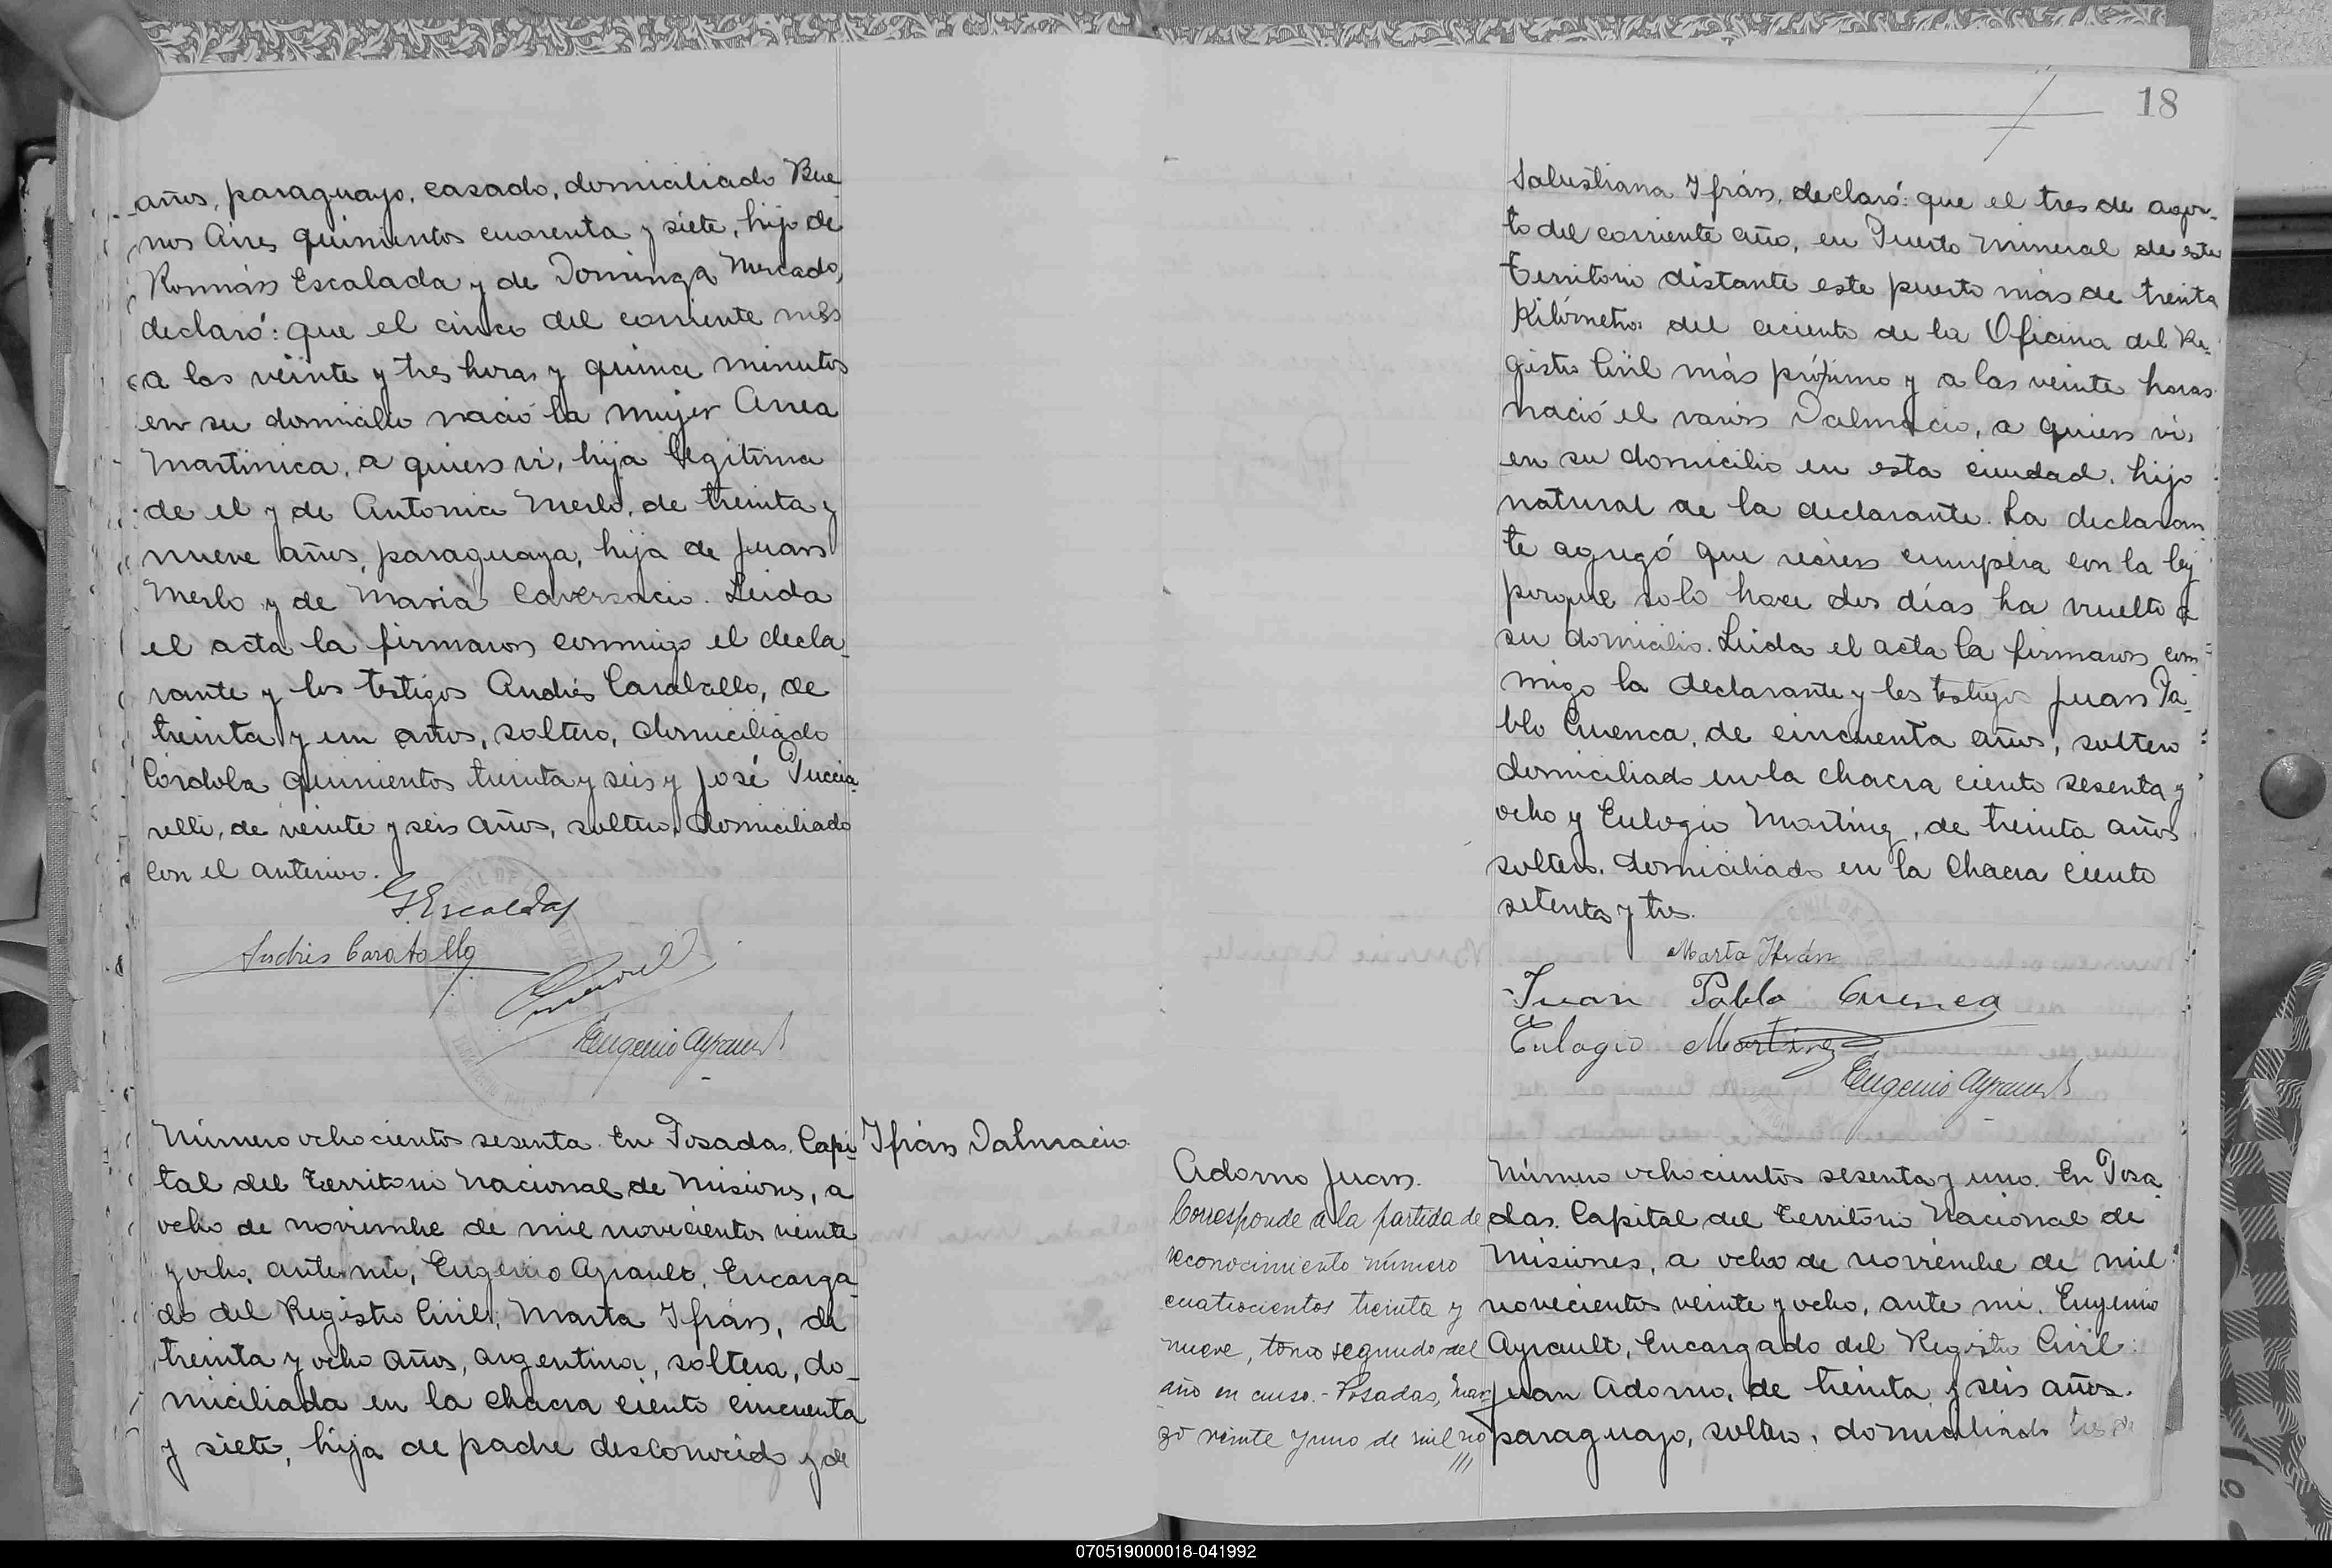 años, paraguayo, casado, domiciliado Bue
nos Aires quinientos cuarenta y siete, hijo de
Román Escalada y de Dominga Mercado,
declaró: que el cinco del corriente mes
a las veinte y tres horas y quince minutos
en su domicilio nació la mujer Anea
Martinica, a quien vi, hija legitima
de el y de Antonia Merlo, de treinta y
nueve años, paraguaya, hija de Juan
Merlo y de Maria Caversacio. Leida
el acta la firmaron conmigo el decla
rante y los testigos Andrés Caraballo, de
treinta y un años, soltero, domiciliado
Córdoba quinientos treinta y seis y José Puccia
relli, de veinte y seis años, soltero, domiciliado
con el anterior.
G. Escalada
Andrés Caraballo
Eugenio Ayrault
Número ochocientos sesenta. En Posadas, Capi
tal del Territorio Nacional de Misiones, a
ocho de noviembre de mil novecientos veinte
y ocho, ante mi, Eugenio Ayrault, Encarga
do del Registro Civil; Marta Ifrán, de
treinta y ocho años, argentina, soltera, do_
miciliada en la chacra ciento cincuenta
y siete, hija de padre desconocido y de
Ifrán Dalmacio
18
Salustiana Ifrán, declaró: que el tres de agos_
to del corriente año, en Puerto Mineral de este
territorio distante este puerto más de treinta
Kilómetros del aciento de la Oficina del Re_
gistro Civil más próximo y a las veinte horas
nació el varón Dalmacio, a quien vi,
en su domicilio en esta ciudad, hijo
natural de la declarante. La declaran_
te agregó que recien cumplia con la ley
porque solo hace dos días ha vuelto a
su domicilio. Leida el acta la firmaron con
migo la declarante y los testigos Juan Pa_
blo Cuenca, de cincuenta años, soltero
domiciliado en la chacra ciento sesenta y
ocho y Eulogio Martinez, de treinta años
soltero, domiciliado en la chacra ciento
setenta y tres.
Marta Ifrán
Juan Pablo Cuenca
Eulogio Martinez
Eugenio Ayrault
Adorno Juan.
Corresponde a la partida de
reconocimiento número
cuatrocientos treinta y
nueve, tomo segundo del
año en curso.- Posadas, Mar
zo veinte y uno de mil no
///
Número ochocientos sesenta y uno. En Posa
das, Capital del Territorio Nacional de
Misiones, a ocho de noviembre de mil
novecientos veinte y ocho, ante mi, Eugenio
Ayrault, Encargado del Registro Civil:
Juan Adorno, de treinta y seis años,
paraguayo, soltero, domiciliado
070519000018-041992